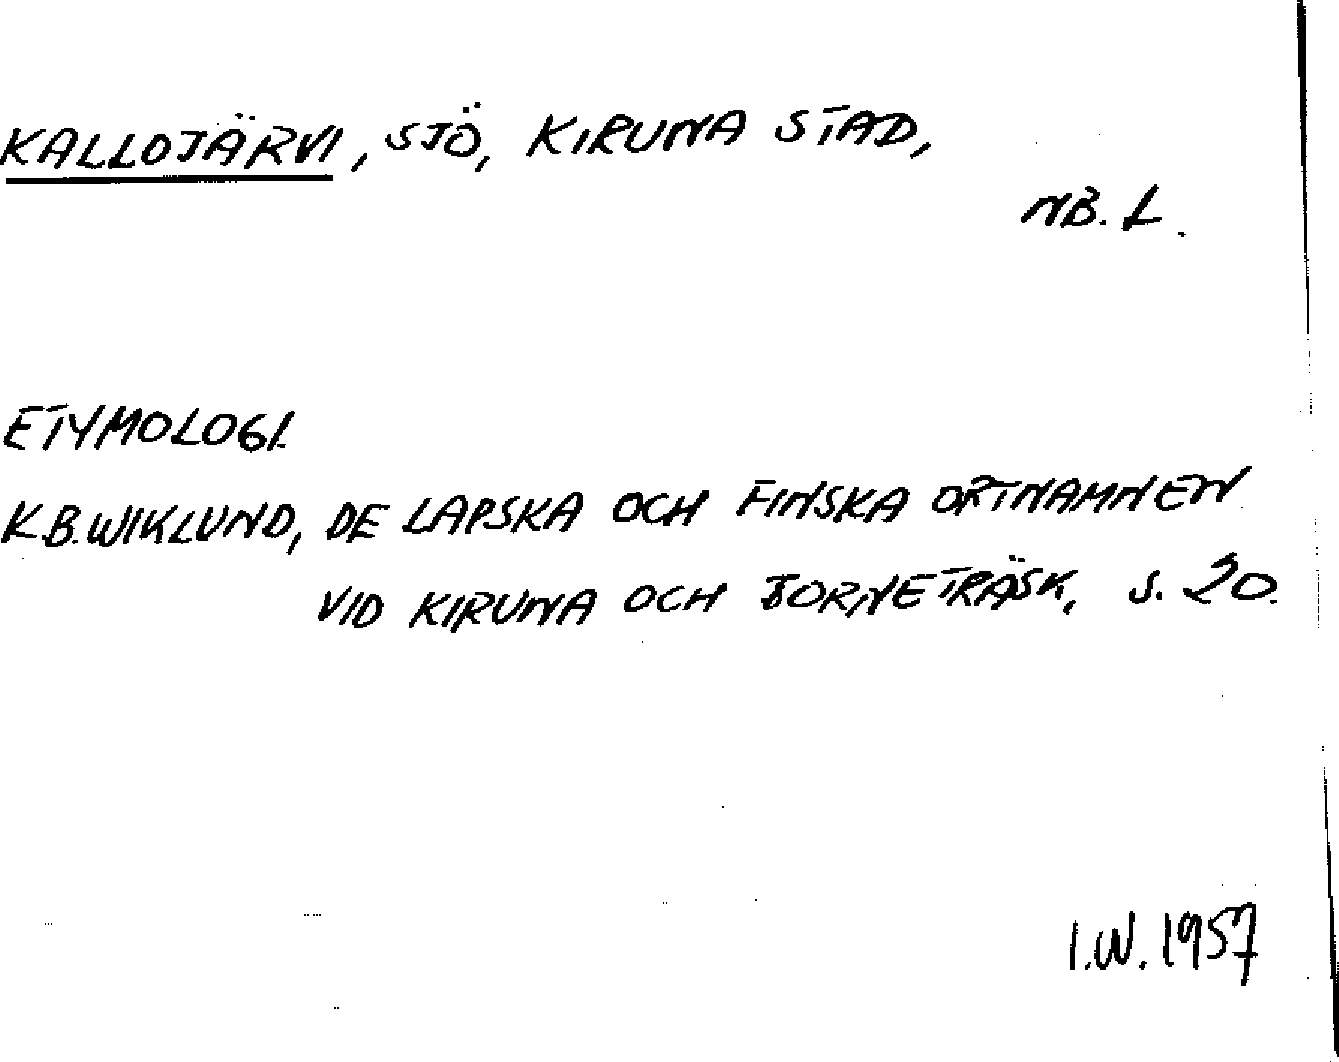 KALLOJÄRVI, SJÖ, KIRUNA STAD,
NB. L.
ETYMOLOGI.
K.B. WIKLUND, DE LAPSKA OCH FINSKA ORTNAMNEN
VID KIRUNA OCH TORNETRÄSK, S. 20.
I.W. 1957